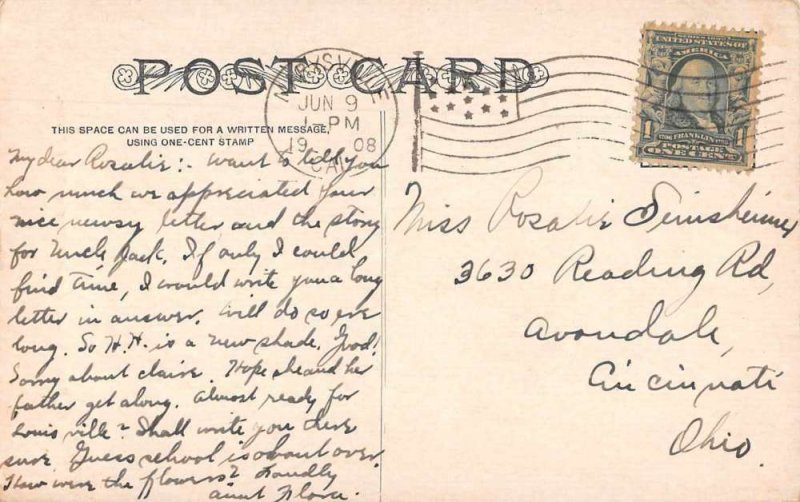 POST CARD
THIS SPACE CAN BE USED FOR A WRITTEN MESSAGE,
USING ONE-CENT STAMP
MARYSVILLE
JUN 9
1-PM
1908
CAL
UNITED STATES OF
AMERICA
FRANKLIN
POSTAGE
1 ONE CENT 1
My dear Rosalie:- Want to tell you
how much we appreciated your
nice newsy letter and the story
for Uncle Jack. If only I could
find time, I would write you a long
letter in answer. Will do so ere
long. So H.H. is a new shade, Good!
Sorry about Claire. Hope she and her
father get along. Almost ready for
Louisville? Shall write you there
sure. Guess school is about over.
How were the flowers? Fondly
Aunt Flora.
Miss Rosalie Seinsheimer
3630 Reading Rd,
Avondale,
Cincinnati
Ohio.